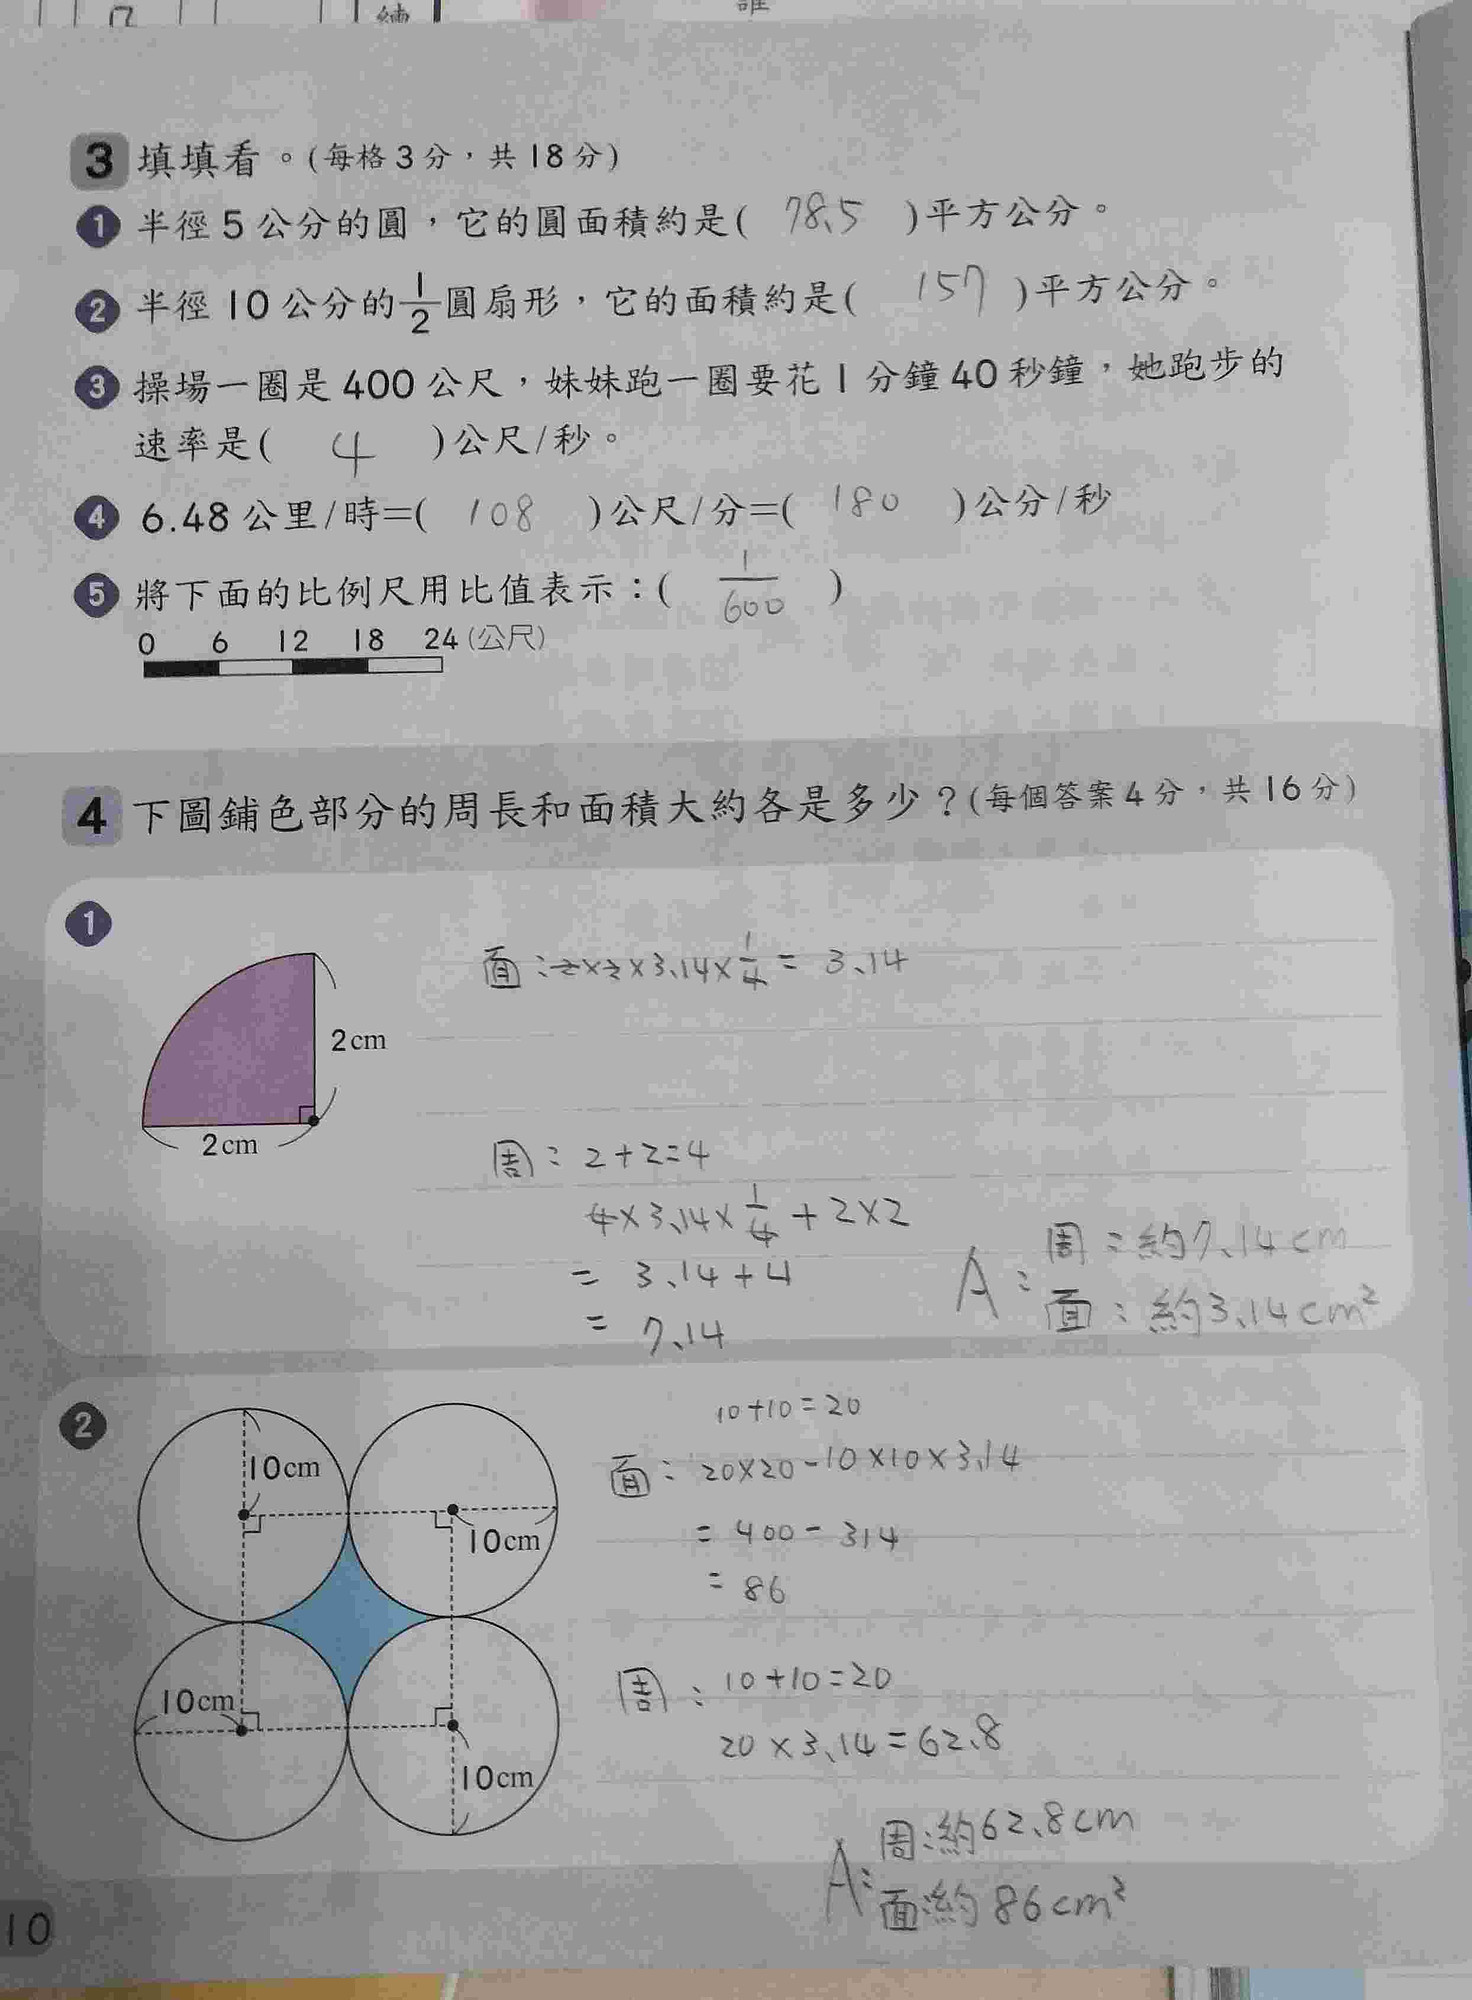 3 填填看。(每格3分，共18分)
1 半徑5公分的圓，它的圓面積約是( 78.5 )平方公分。
2 半徑10公分的1/2圓扇形，它的面積約是( 157 )平方公分。
3 操場一圈是400公尺，妹妹跑一圈要花1分鐘40秒鐘，她跑步的
速率是( 4 )公尺/秒。
4 6.48公里/時=( 108 )公尺/分=( 180 )公分/秒
5 將下面的比例尺用比值表示：( 1/600 )
0 6 12 18 24(公尺)
4 下圖鋪色部分的周長和面積大約各是多少？(每個答案4分，共16分)
1
面：2×2×3.14×1/4=3.14
2cm
2cm
周：2+2=4
4×3.14×1/4+2×2
=3.14+4
=7.14
A：周：約7.14cm
面：約3.14cm²
2
10cm
10cm
10cm
10cm
10+10=20
面：20×20-10×10×3.14
=400-314
=86
周：10+10=20
20×3.14=62.8
A：周：約62.8cm
面：約86cm²
10